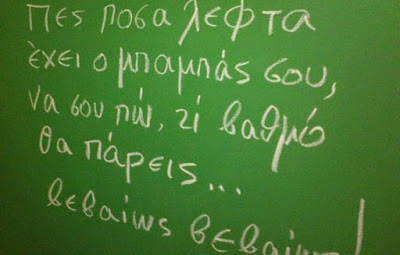 Πες ποσα λεφτα
έχει ο μπαμπάς σου,
να σου πώ, τί βαθμό
θα πάρεις...
βεβαίως βεβαίως!